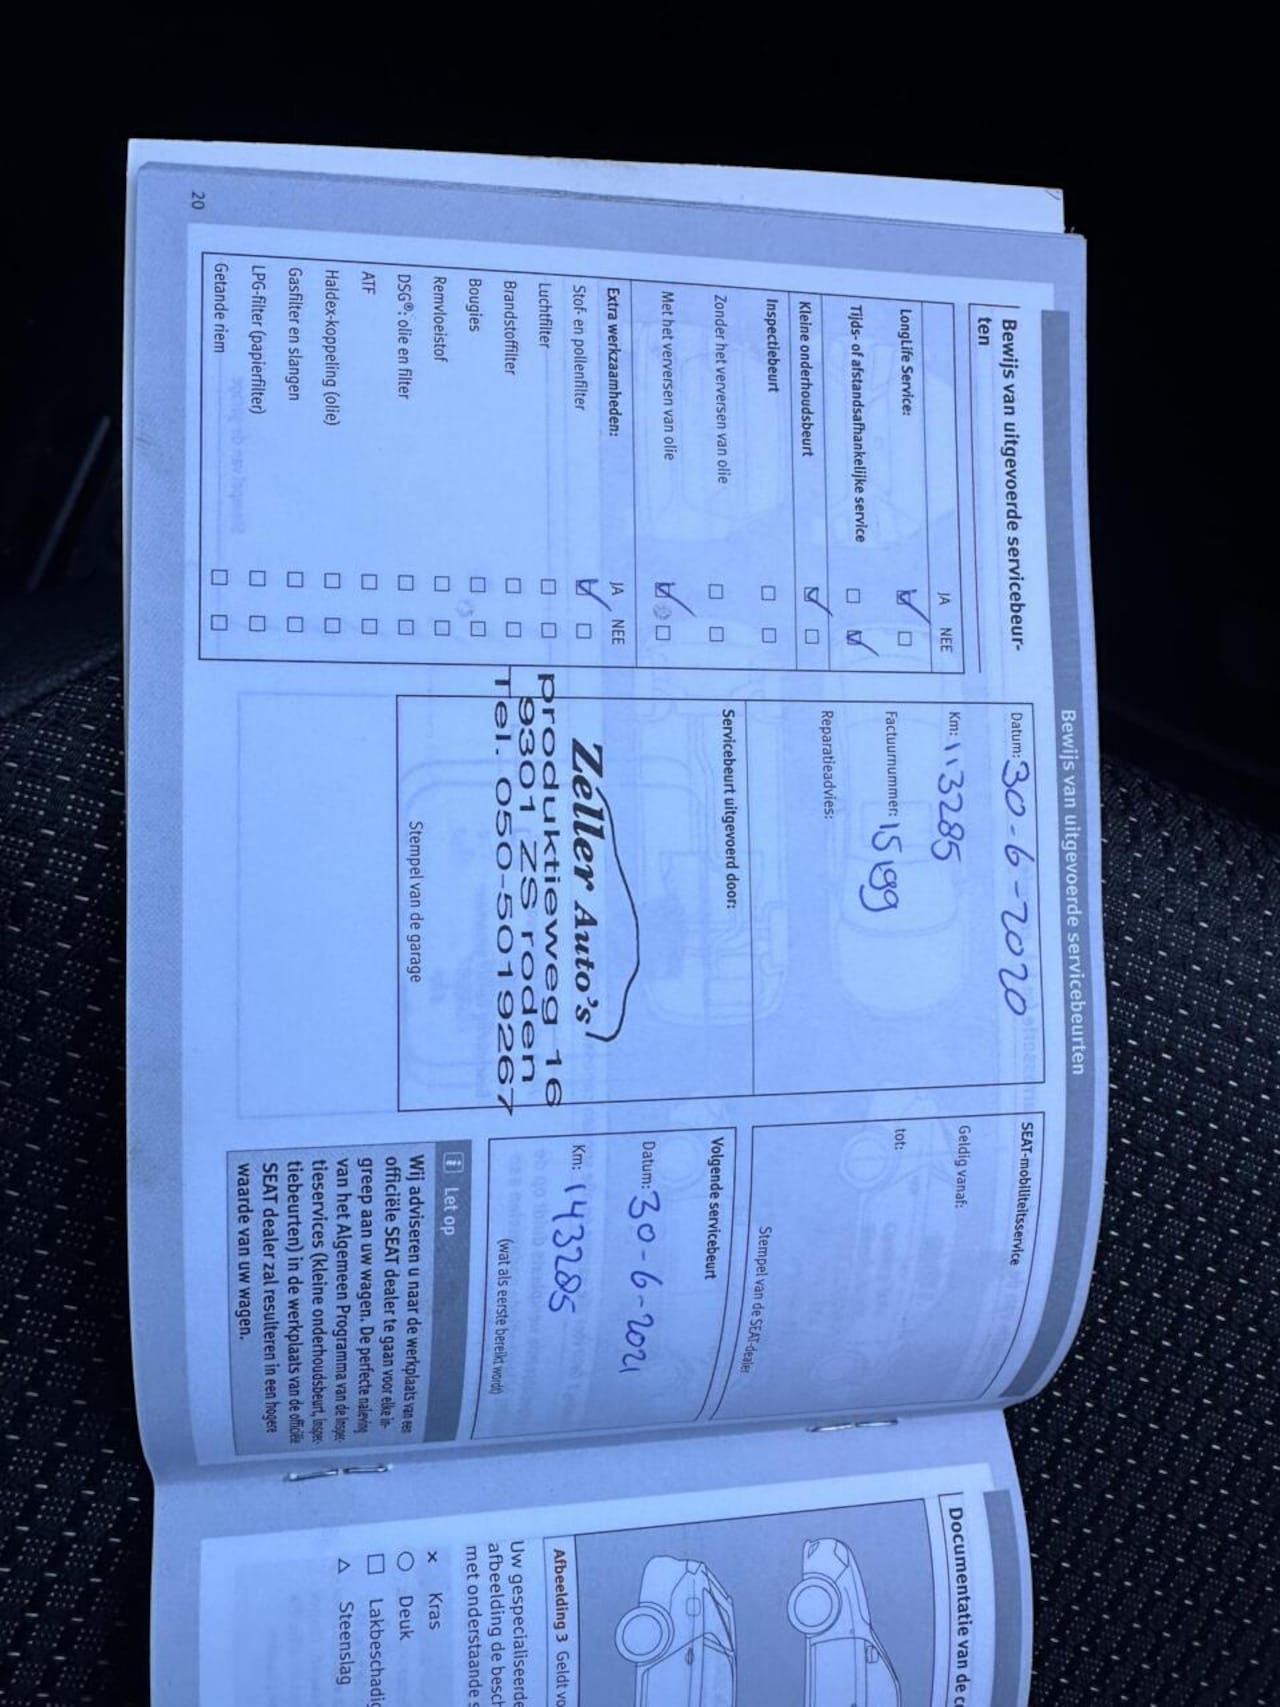 Bewijs van uitgevoerde servicebeurten
Bewijs van uitgevoerde servicebeur-
ten
JA NEE
LongLife Service: ☑ ☐
Tijds- of afstandsafhankelijke service ☐ ☑
Kleine onderhoudsbeurt ☑ ☐
Inspectiebeurt ☐ ☐
Zonder het verversen van olie ☐ ☐
Met het verversen van olie ☑ ☐
Extra werkzaamheden: JA NEE
Stof- en pollenfilter ☑ ☐
Luchtfilter ☐ ☐
Brandstoffilter ☐ ☐
Bougies ☐ ☐
Remvloeistof ☐ ☐
DSG®: olie en filter ☐ ☐
ATF ☐ ☐
Haldex-koppeling (olie) ☐ ☐
Gasfilter en slangen ☐ ☐
LPG-filter (papierfilter) ☐ ☐
Getande riem ☐ ☐
20
Datum: 30-6-2020
Km: 113285
Factuurnummer: 15199
Reparatieadvies:
Servicebeurt uitgevoerd door:
Zéller Auto's
produktieweg 16
9301 ZS roden
Tel. 050-5019267
Stempel van de garage
SEAT-mobiliteitsservice
Geldig vanaf:
tot:
Stempel van de SEAT-dealer
Volgende servicebeurt
Datum: 30-6-2021
Km: 143285
(wat als eerste bereikt wordt)
i Let op
Wij adviseren u naar de werkplaats van een
officiële SEAT dealer te gaan voor elke in-
greep aan uw wagen. De perfecte naleving
van het Algemeen Programma van de Inspec-
tieservices (kleine onderhoudsbeurt, inspec-
tiebeurten) in de werkplaats van de officiële
SEAT dealer zal resulteren in een hogere
waarde van uw wagen.
Documentatie van de c
Afbeelding 3 Geldt vo
Uw gespecialiseerde
afbeelding de besch
met onderstaande s
× Kras
○ Deuk
☐ Lakbeschadig
△ Steenslag